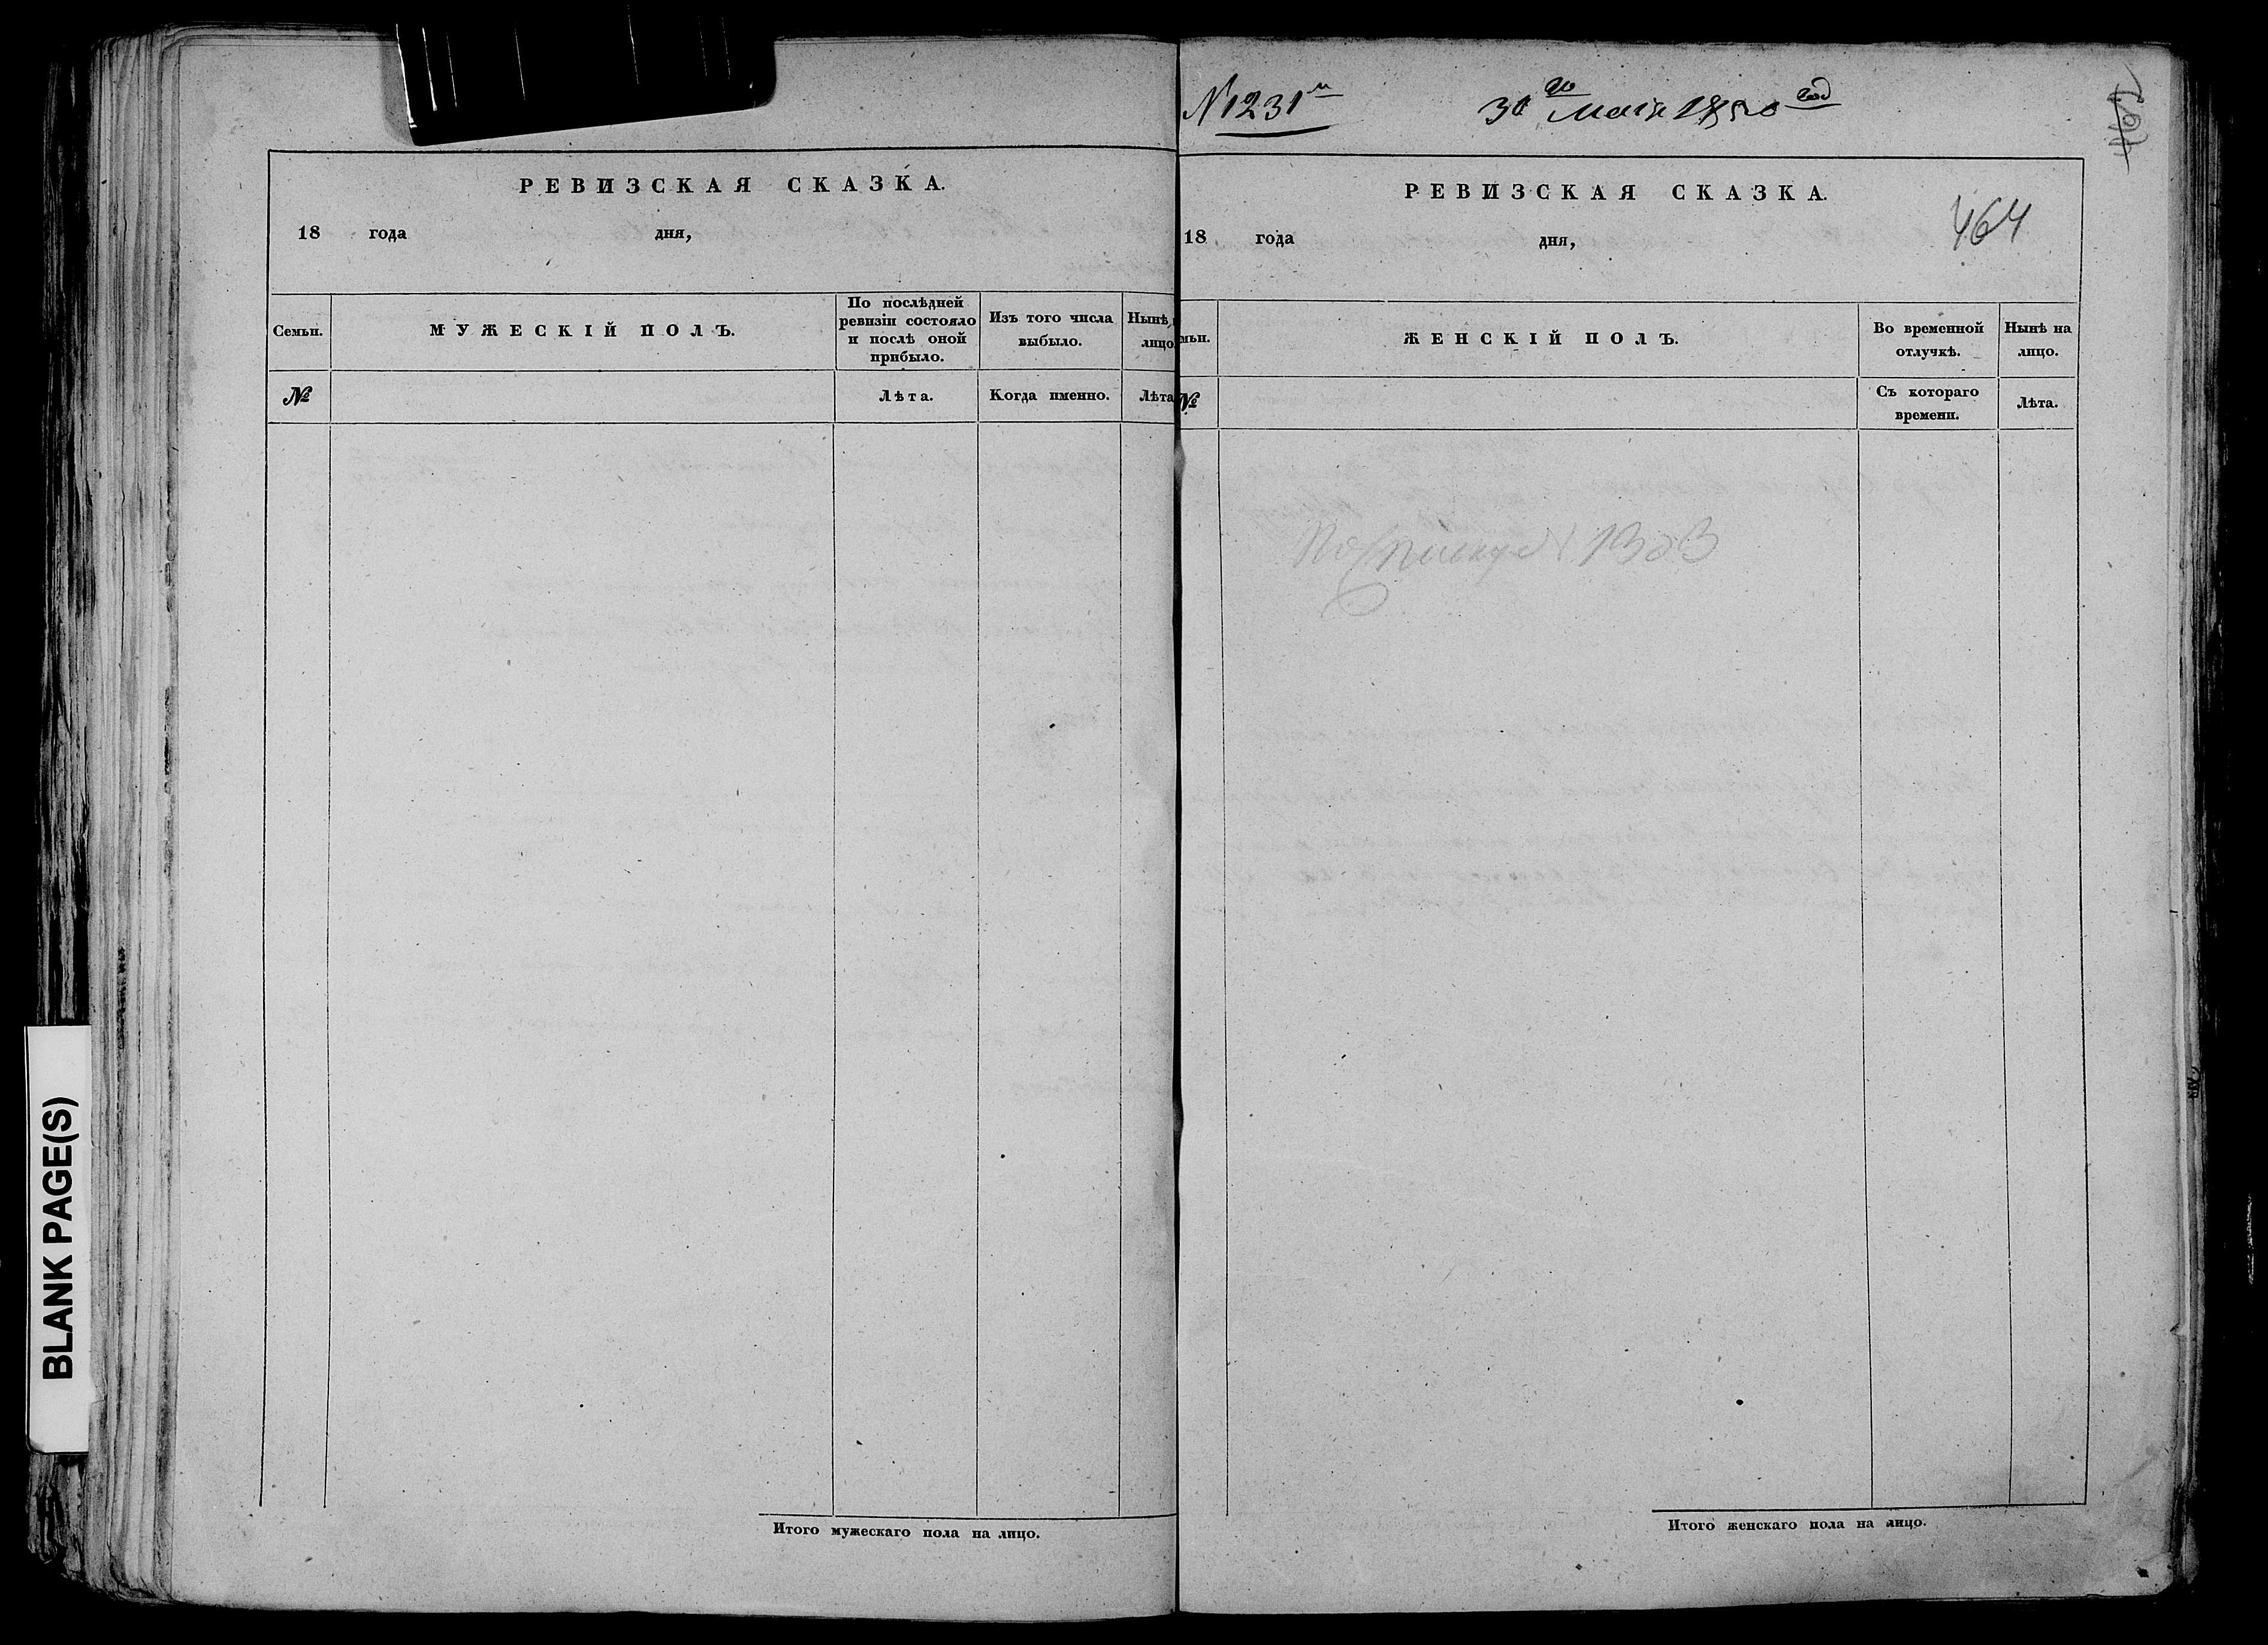 РЕВИЗСКАЯ СКАЗКА.
18 года дня,
Семьи.
МУЖЕСКІЙ ПОЛЪ.
По послѣдней
ревизіи состояло
и послѣ оной
прибыло.
Изъ того числа
выбыло.
Нынѣ
лицо
№
Лѣта.
Когда именно.
Лѣта
Итого мужескаго пола на лицо.
BLANK PAGE(S)
№ 1231й
30го Маія 1850 год
РЕВИЗСКАЯ СКАЗКА.
464
18 года дня,
мьи.
ЖЕНСКІЙ ПОЛЪ.
Во временной
отлучкѣ.
Нынѣ на
лицо.
№
Съ котораго
времени.
Лѣта.
По списку
Итого женскаго пола на лицо.